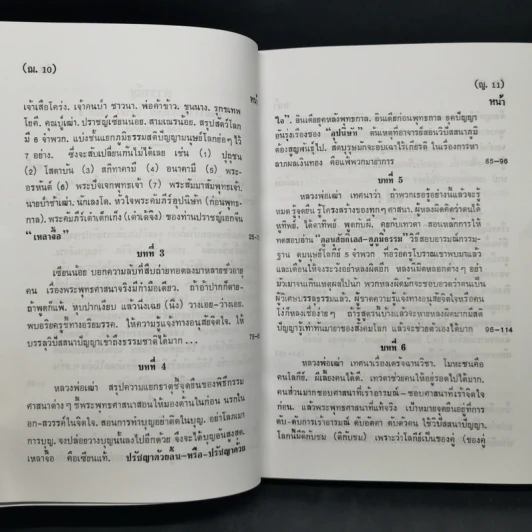 (ฌ. 10)
หน้า
เจ้าเสือโคร่ง. เจ้าคนป่า ชาวนา. พ่อค้าข้าว. ขุนนาง. รุกขเทพ
โยคี. คณปู่เฒ่า. ปราชญ์เซียนน้อย. สามเณรน้อย. สรุปสัตว์โลก
มี 6 จำพวก. แบ่งชั้นแยกภูมิธรรมสติปัญญามนุษย์โลกย่อๆ ไว้
7 อย่าง. ซึ่งจะสับเปลี่ยนกันไม่ได้เลย เช่น (1) ปุถุชน
(2) โสดาบัน (3) สกิทาคามี (4) อนาคามี (5) พระ-
อรหันต์ (6) พระปัจเจกพุทธเจ้า (7) พระสัมมาสัมพุทธเจ้า.
นายป่าช้าเผ่า. นักเลงโต. หัวใจพระคัมภีร์อุปนิษัท (ก่อนพุทธ-
กาล). พระคัมภีร์เต๋าเต็กเก็ง (เต๋าเต้จิง) ของท่านปราชญ์เอกจีน
"เหลาจื๊อ"
บทที่ 3
เซียนน้อย บอกความลับที่สืบถ่ายทอดลงมาหลายชั่วอายุ
คน เรื่องพระพุทธศาสนาจริงมีกำมือเดียว. ถ้าอ้าปากก็ตาย-
ถ้าพูดก็แพ้. หุบปากเงียบ แล้วนิ่งเฉย (นิ่ง) วางเฉย-ว่างเฉย.
พบอริยครูชี้ทางอริยมรรค. ให้ความรู้แจ้งทางอนุสัยจิตใจ. ให้
บรรลุวิปัสสนาปัญญาเข้าถึงธรรมชาติได้มาก ...
บทที่ 4
หลวงพ่อเฒ่า สรุปความแยกธาตุชี้จุดยืนของพิธีกรรม
ศาสนาต่างๆ ชี้พระพุทธศาสนาสอนให้มองด้านในก่อน นรกใน
อก-สวรรค์ในจิตใจ. สอนการทำบุญอย่าติดในบุญ. อย่าโลภเมา
การบุญ. จงปล่อยวางบุญนั้นลงไปอีกด้วย จึงจะได้บุญอันสูงสุด.
เหลาจื๊อ คือเซียนแท้.
(ญ. 11)
หน้า
ใจ". อินเดียยุคหลังพุทธกาล. อินเดียก่อนพุทธกาล ยุคปัญญา
อันรุ่งเรืองของ "อุปนิษัท" ต้นเหตุที่อาจารย์สอนวิปัสสนาเต็ม
ต้องสูญพันธุ์ไป. สัตบุรุษมักจะอมใจไว้เกียรติ ในเรื่องการหา
ลาภผลเงินทอง คือแพ้พวกมายาการ 65-96
บทที่ 5
หลวงพ่อเฒ่า เทศนาว่า ถ้าพวกเธอรู้อย่างนี้แล้วจะรู้
หมด รู้จุดยืน รู้โครงสร้างของทุกๆ ศาสนา. ผู้หลงผิดคิดว่าตนได้
หูทิพย์. ได้ตาทิพย์ พูดกับผี. คุยกับเทวดา. สอนหลักการให้
ทดสอบอ่าน
ดูมนุษย์โลกมี 5 จำพวก ที่อริยครูโบราณเราพบมาแล้ว
และเตือนให้จงระวังอย่าหลงผิดอีก. หลงนิมิตหลอกต่างๆ อย่า
มัวเมาจนเกินเหตุเลยไปนัก. พวกหลงผิดมักจะชอบอวดว่าตนเป็น
ผู้วิเศษ บรรลุธรรมแล้ว. ผู้ขาดความรู้แจ้งทางอนุสัยจิตใจหรอคน
โง่ก็หลงง่ายๆ อย่างนี้เอง ถ้ารู้สูตรนี้บ้างแล้วจะหายหลงผิดมากมีสติ
ปัญญารู้เท่าทันมายาของสังคมโลก แล้วจะช่วยตัวเองได้มาก 96-114
บทที่ 6
หลวงพ่อเฒ่า เทศนาเรื่องเดรัจฉานวิชา. โมหะชนคือ
คนโลกีย์. ผีเลี้ยงคนได้ดี. เทวดาช่วยคนให้อยู่รอดไปได้มาก.
คนส่วนมากชอบศาสนาที่เร้าอารมณ์-ชอบศาสนาที่เร้าจิตใจ
ก่อน. แล้วพระพุทธศาสนาที่แท้จริง เป้าหมายจุดยืนอยู่ที่การ
ดับ-ดับการเร้าอารมณ์ ดับอัตตา ดับตัวตน ใช้วิปัสสนาปัญญา.
โลกนี้มีดีกับชม (ดีกับชม) เพราะว่าโลกีย์เป็นของคู่ (ของคู่